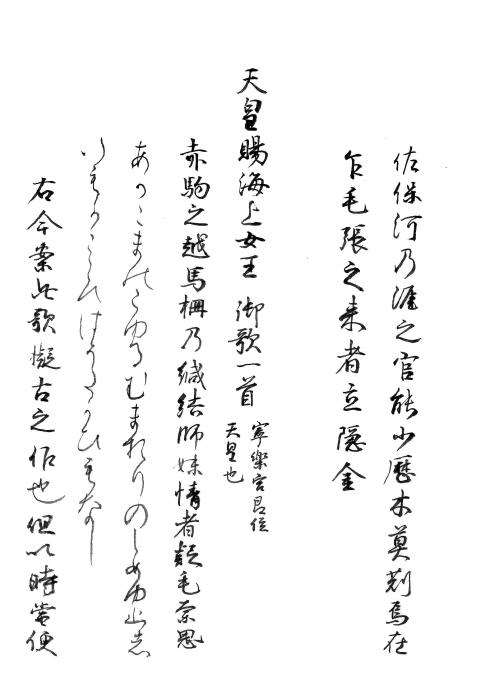 佐保河乃涯之官能少歴木莫刈焉在
乍毛張之来者立隠金
天皇賜海上女王 御歌一首 寧樂宮即位
天皇也
赤駒之越馬柵乃緘結師妹情者疑毛奈思
あかこまのこゆるむまをりのしめゆひし
いもかこゝろはうたかひもなし
右今案此歌擬古之作也但以時當便